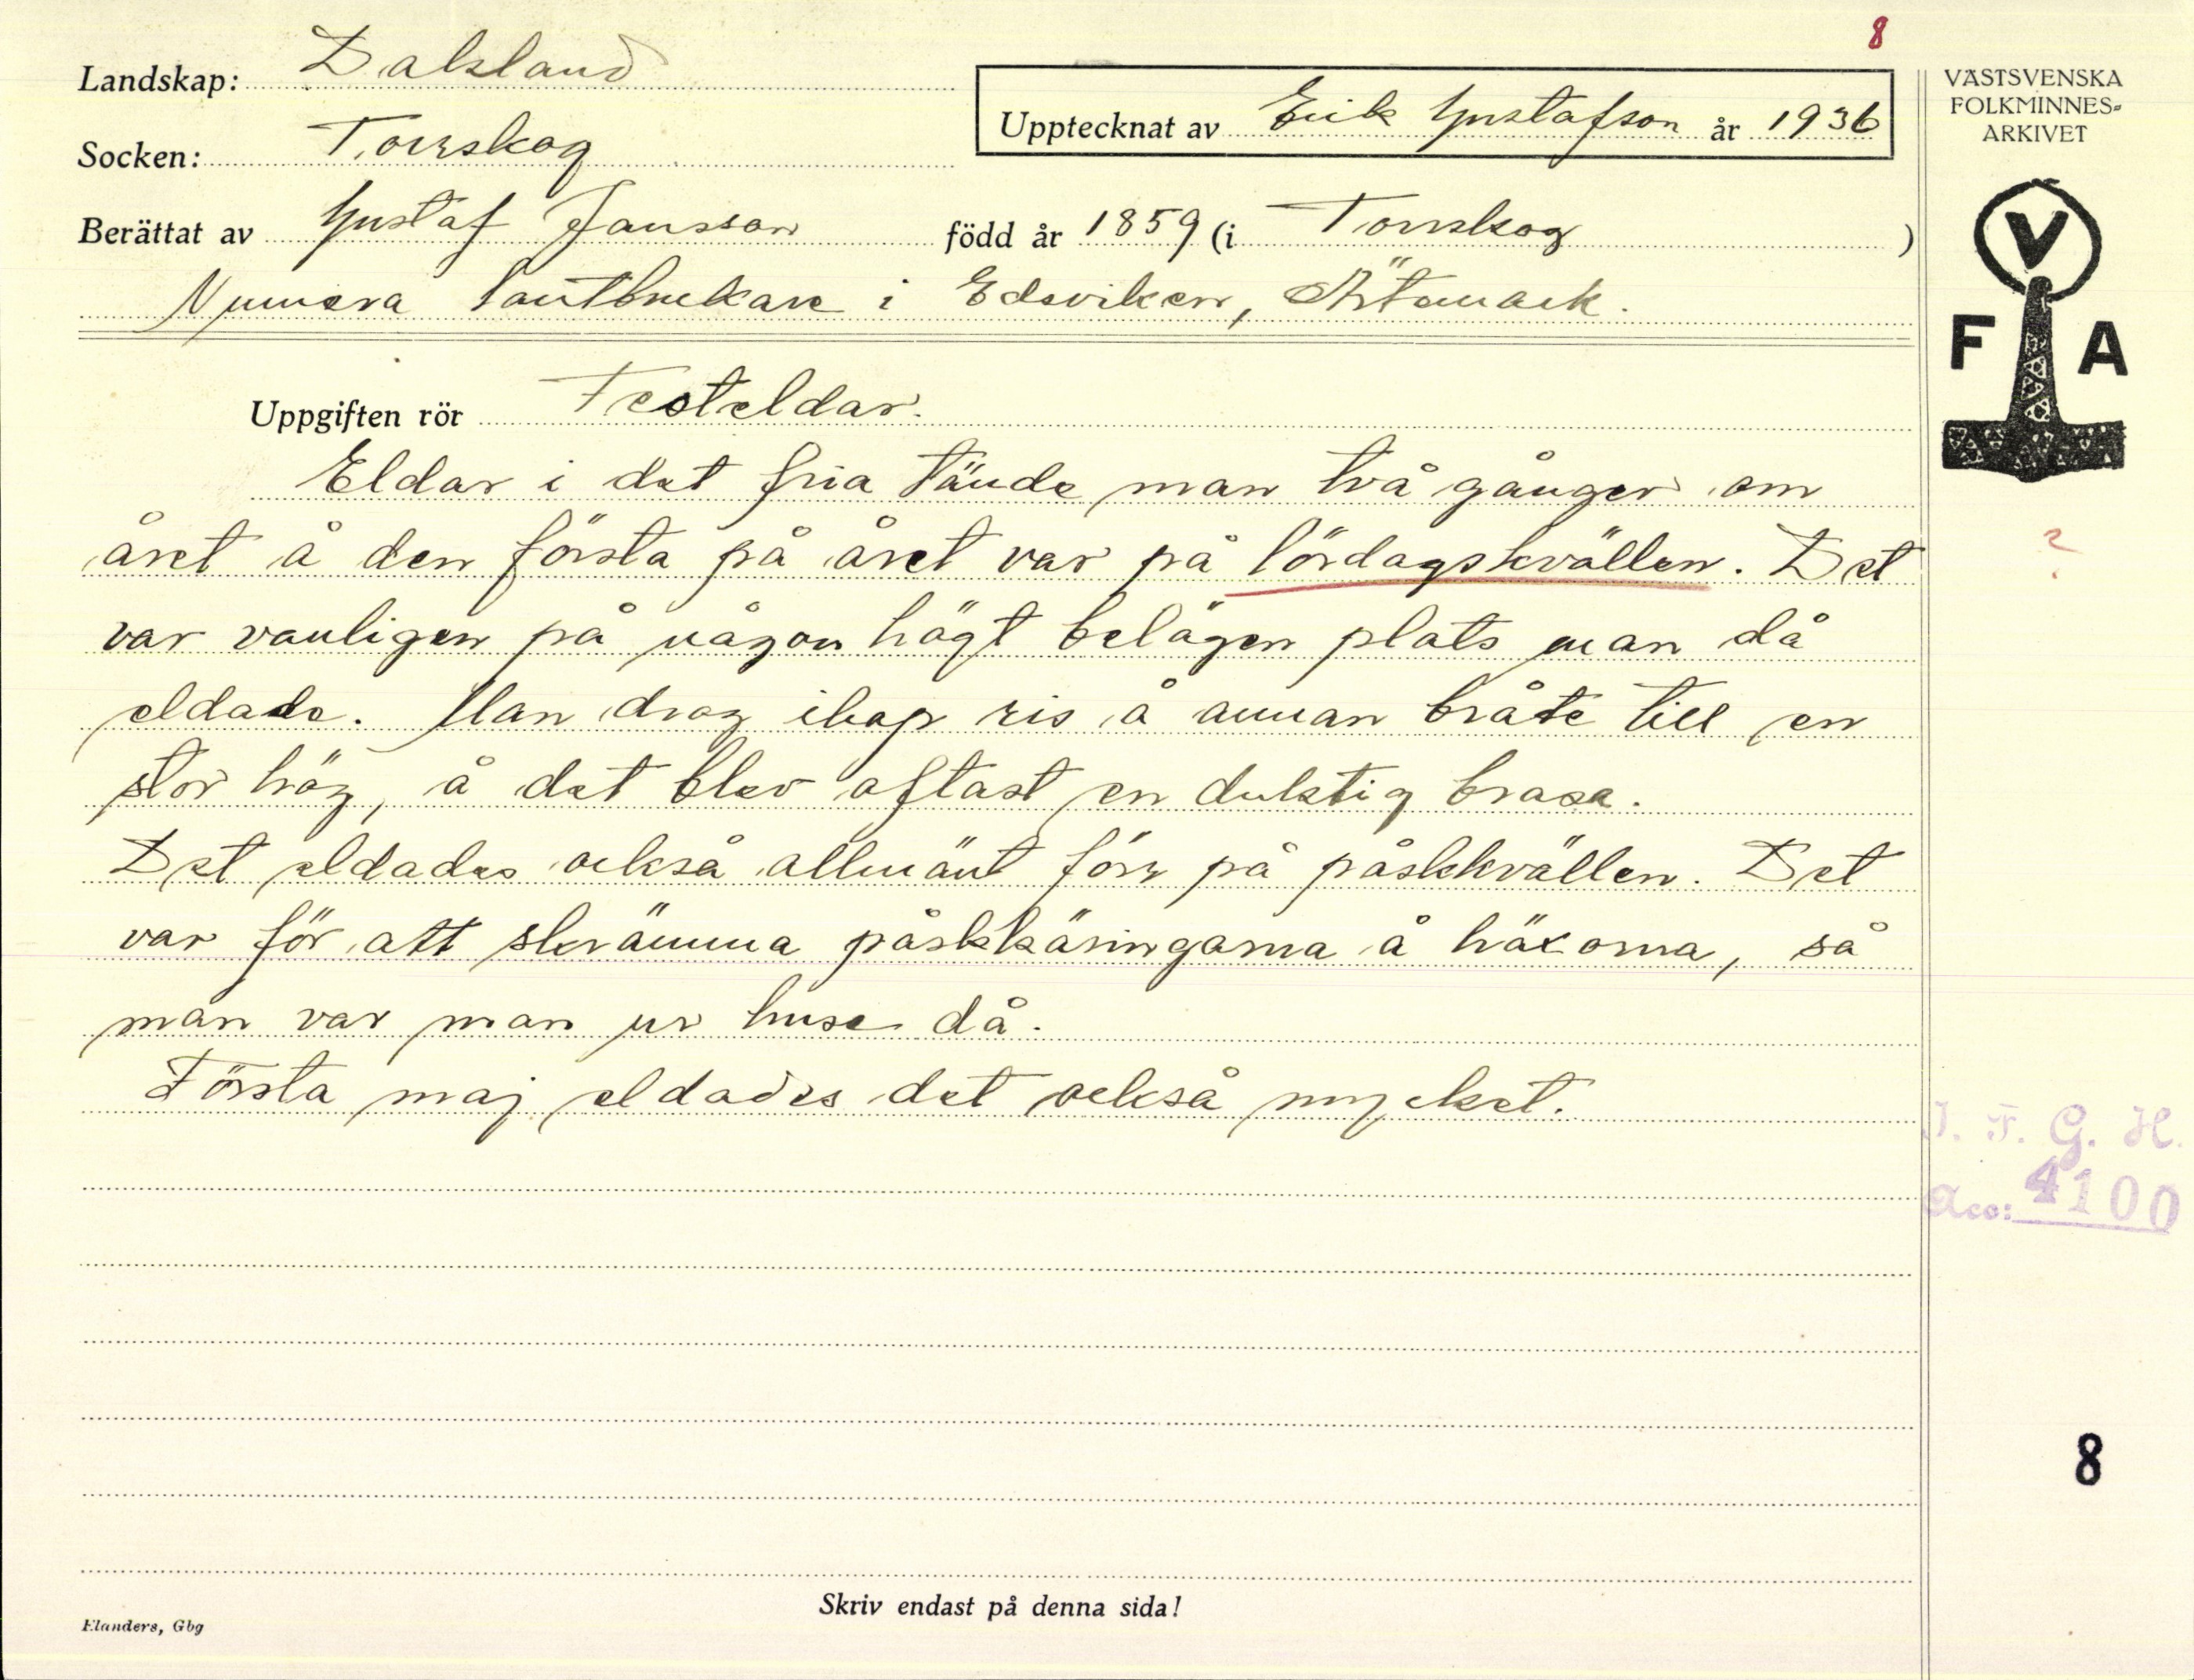 8
Landskap: Dalsland
Upptecknat av Erik Gustafson år 1936
VÄSTSVENSKA
FOLKMINNES-
ARKIVET
Socken: Torrskog
Berättat av Gustaf Jansson född år 1859 (i Torrskog )
Numera lantbrukare i Edsviken, Ärtemark.
V
F A
Uppgiften rör Festeldar.
Eldar i det fria tände man två gånger om
året å den första på året var på lördagskvällen. Det
?
var vanligen på någon högt belägen plats man då
eldade. Man drog ihop ris å annan bråte till en
stor hög, å det blev oftast en duktig brasa.
Det eldades också allmänt förr på påskkvällen. Det
var för att skrämma påskkäringarna å häxorna, så
man var man ur huse då.
Första maj eldades det också mycket.
I. F. G. H.
Acc: 4100
8
Skriv endast på denna sida!
Elanders, Gbg